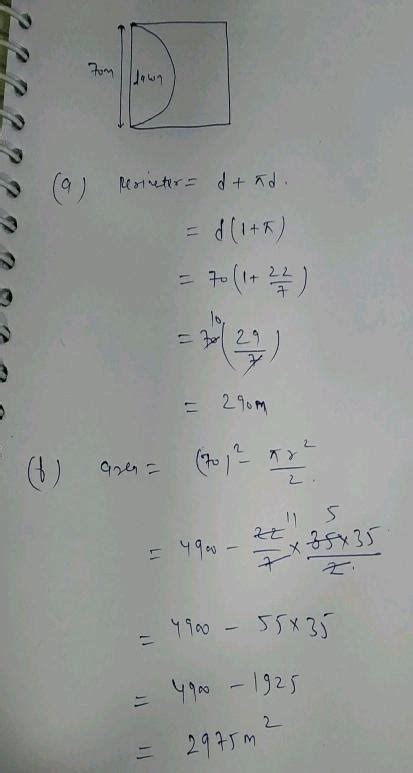 70m
lawn
(a) Perimeter = d + πd.
= d(1+π)
= 70(1+ 22/7)
= 70 10 (29/7)
= 290m
(b) area = (70)² - πr²/2.
= 4900 - 22 11/7 × 35 5 × 35/2.
= 4900 - 55×35
= 4900 - 1925
= 2975m²